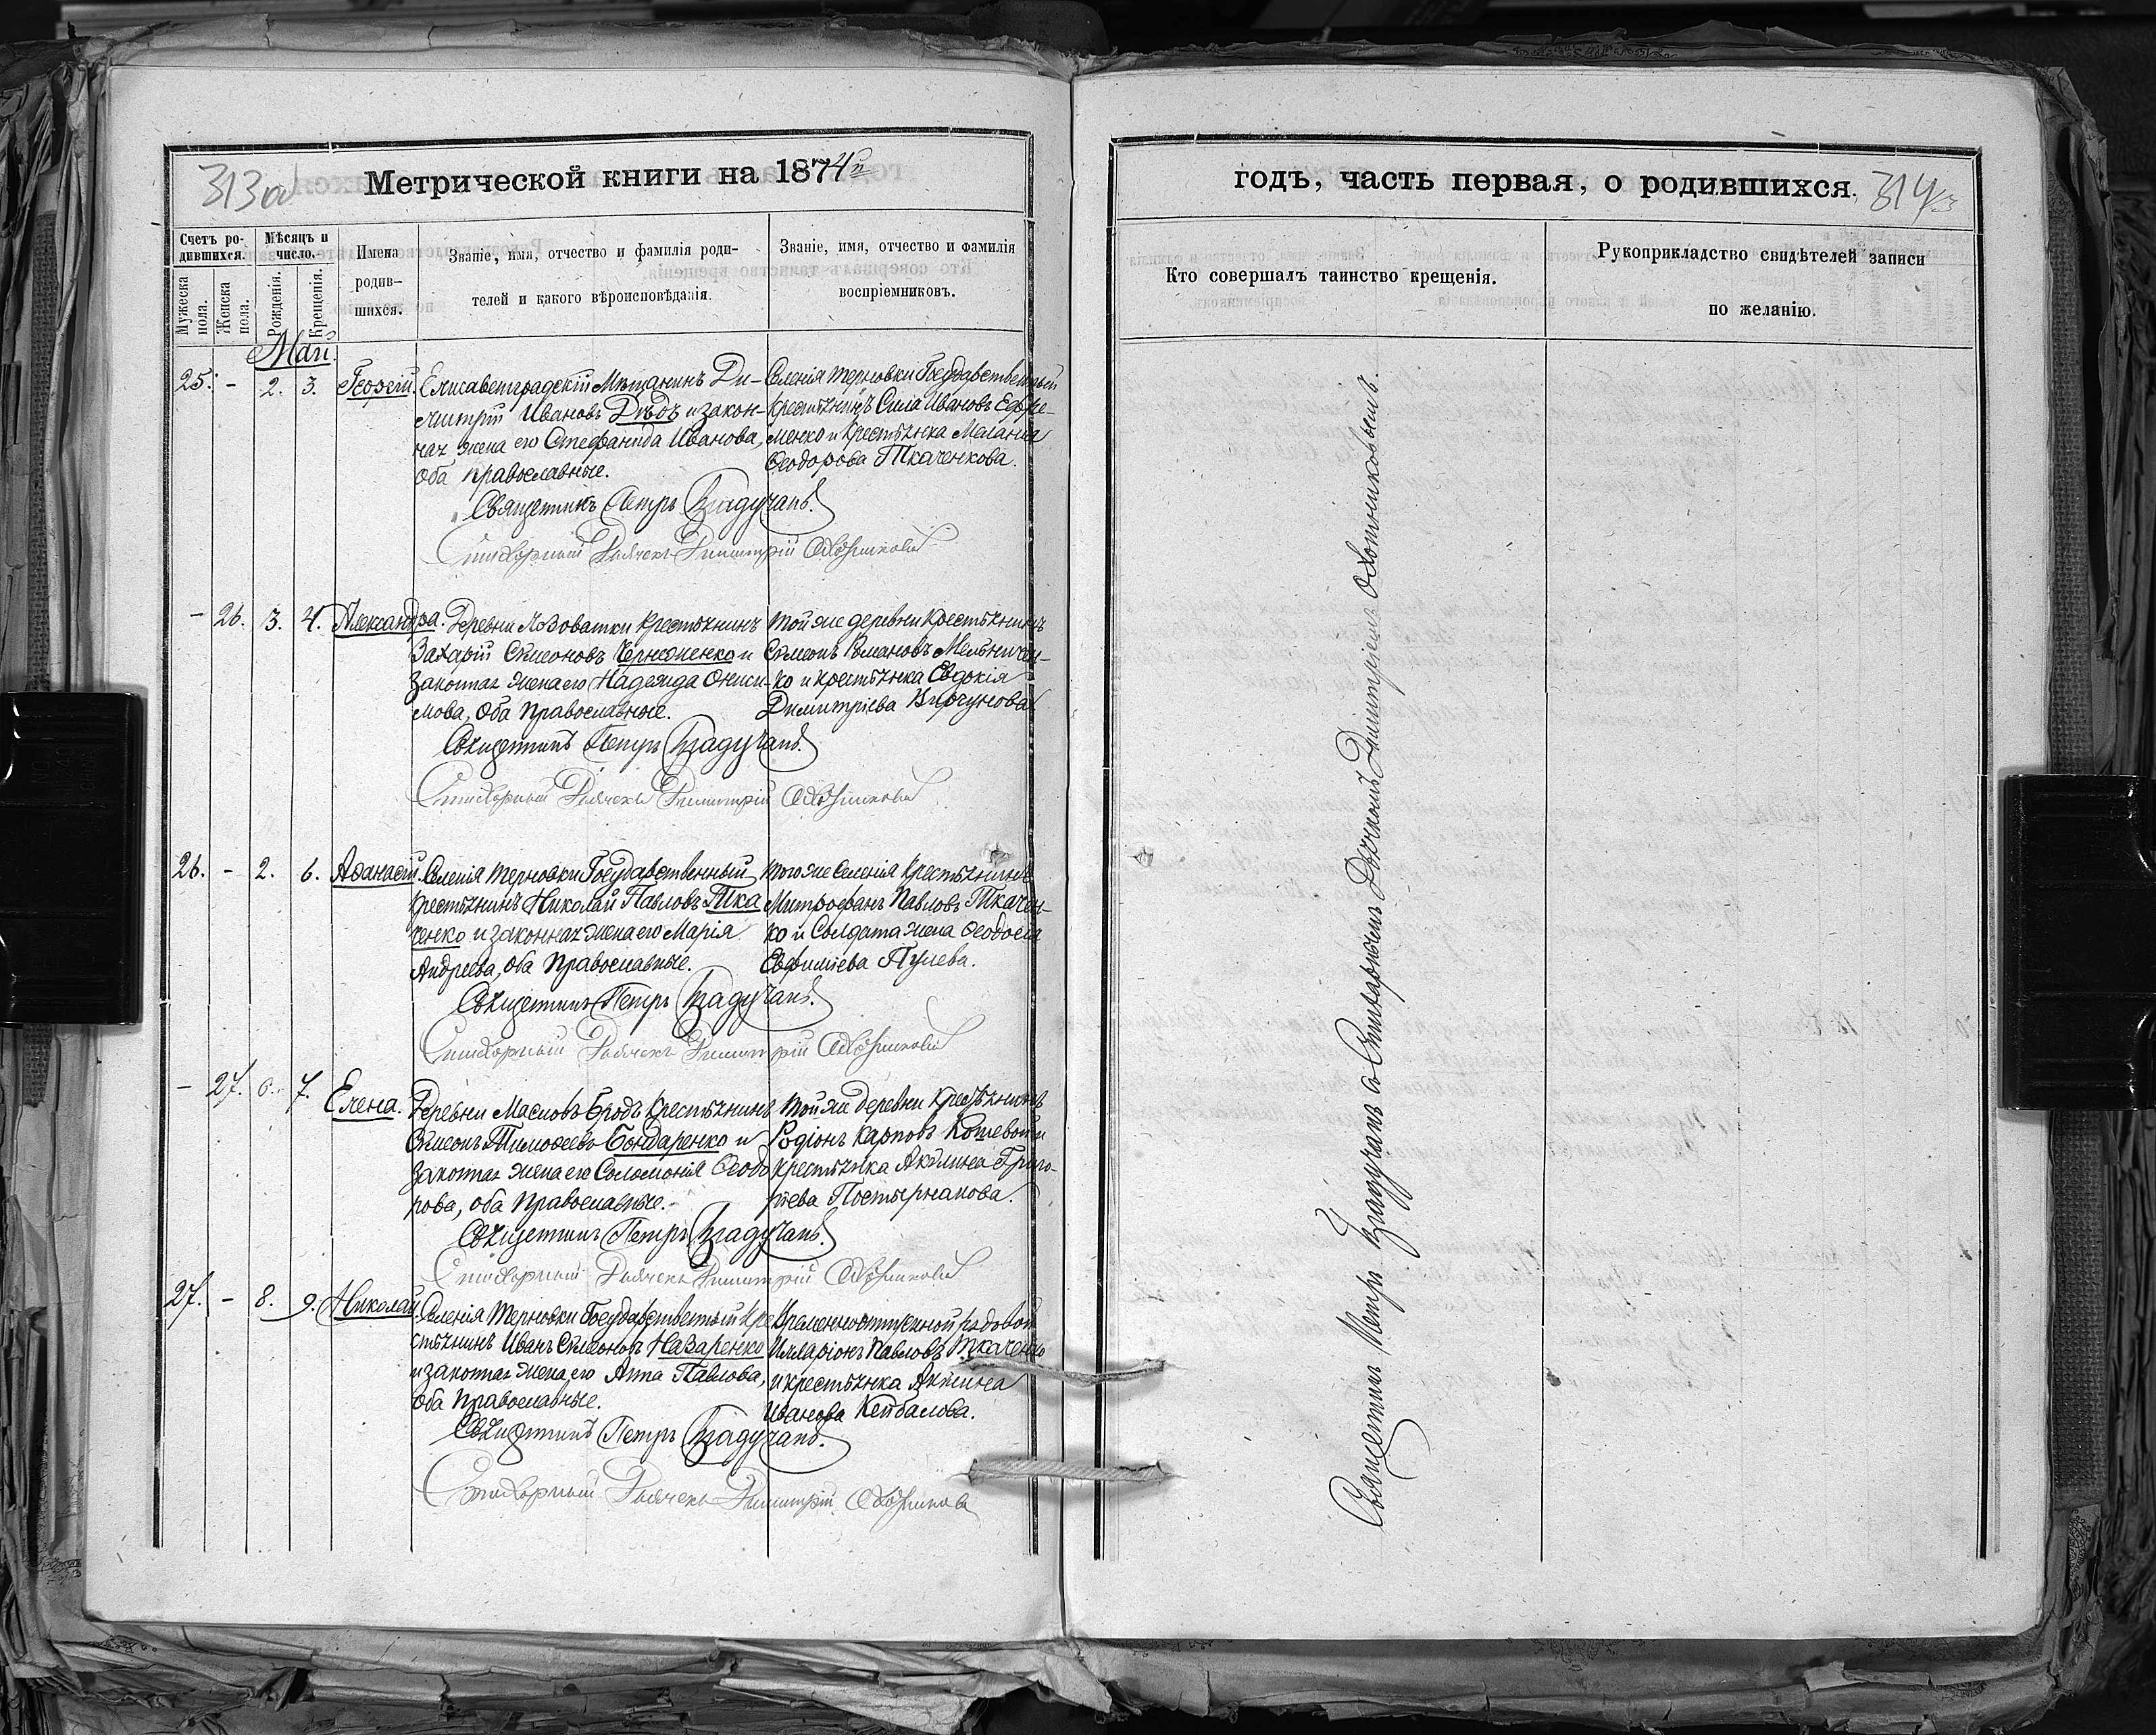 313 об
Метрической книги на 1874й
Счетъ родившихся.
Мужеска пола.
Женска пола.
Мѣсяцъ и число.
Рожденія.
Крещенія.
Имена родившихся.
Званіе, имя, отчество и фамилія родителей и какого вѣроисповѣданія.
Званіе, имя, отчество и фамилія воспріемниковъ.
Май.
25. - 2. 3. Георгій.
Елисаветградскій Мѣщанинъ Ди-
митрій Ивановъ Дѣдъ и закон-
ная жена его Стефанида Иванова,
оба православные.
Селенія Терновки Государственный
крестьянинъ Сила Ивановъ Ефре-
менко и крестьянка Меланія
Ѳеодорова Ткаченкова.
Священникъ Петръ
Стихарный Дьячекъ Димитрій
- 26. 3. 4. Александра.
Деревни Лозоватки крестьянинъ
Захарій Сѵмеоновъ и
законная жена его Надежда Ониси-
мова, оба Православные.
Той же деревни Крестьянинъ
Сѵмеонъ Романовъ Мельничен-
ко и крестьянка Евдокія
Димитріева
Священникъ Петръ
Стихарный Дьячекъ Димитрій
26. - 2. 6. Аѳанасій.
Селенія Терновки Государственный
крестьянинъ Николай Павловъ Тка
ченко и законная жена его Марія
Андреева, оба Православные.
Того же Селенія Крестьянинъ
Митрофанъ Павловъ Ткачен-
ко и Солдатская жена Ѳеодосія
Евфиміева Пулева.
Священникъ Петръ
Стихарный Дьячекъ Димитрій
- 27. 6. 7. Елена.
Деревни Масловъ Бродъ Крестьянинъ
Сѵмеонъ Тимоѳеевъ Бондаренко и
законная жена его Соломонія Ѳеодо
рова, оба Православные.
Той же деревни Крестьянинъ
Родіонъ Карповъ Кошевой и
крестьянка Акилина Григо-
рьева
Священникъ Петръ
Стихарный Дьячекъ Димитрій
27. - 8. 9. Николай.
Селенія Терновки Государственный Кре
стьянинъ Иванъ Сѵмеоновъ Назаренко
и законная жена его Анна Павлова,
оба Православные.
Временноотпускной рядовой
Илларіонъ Павловъ Ткаченко
и крестьянка Акилина
Иванова
Священникъ Петръ
Стихарный Дьячекъ Димитрій
годъ, часть первая, о родившихся.
314
Кто совершалъ таинство крещенія.
Рукоприкладство свидѣтелей записи
по желанію.
Священникъ Петръ съ Стихарнымъ Дьячкомъ Димитріемъ